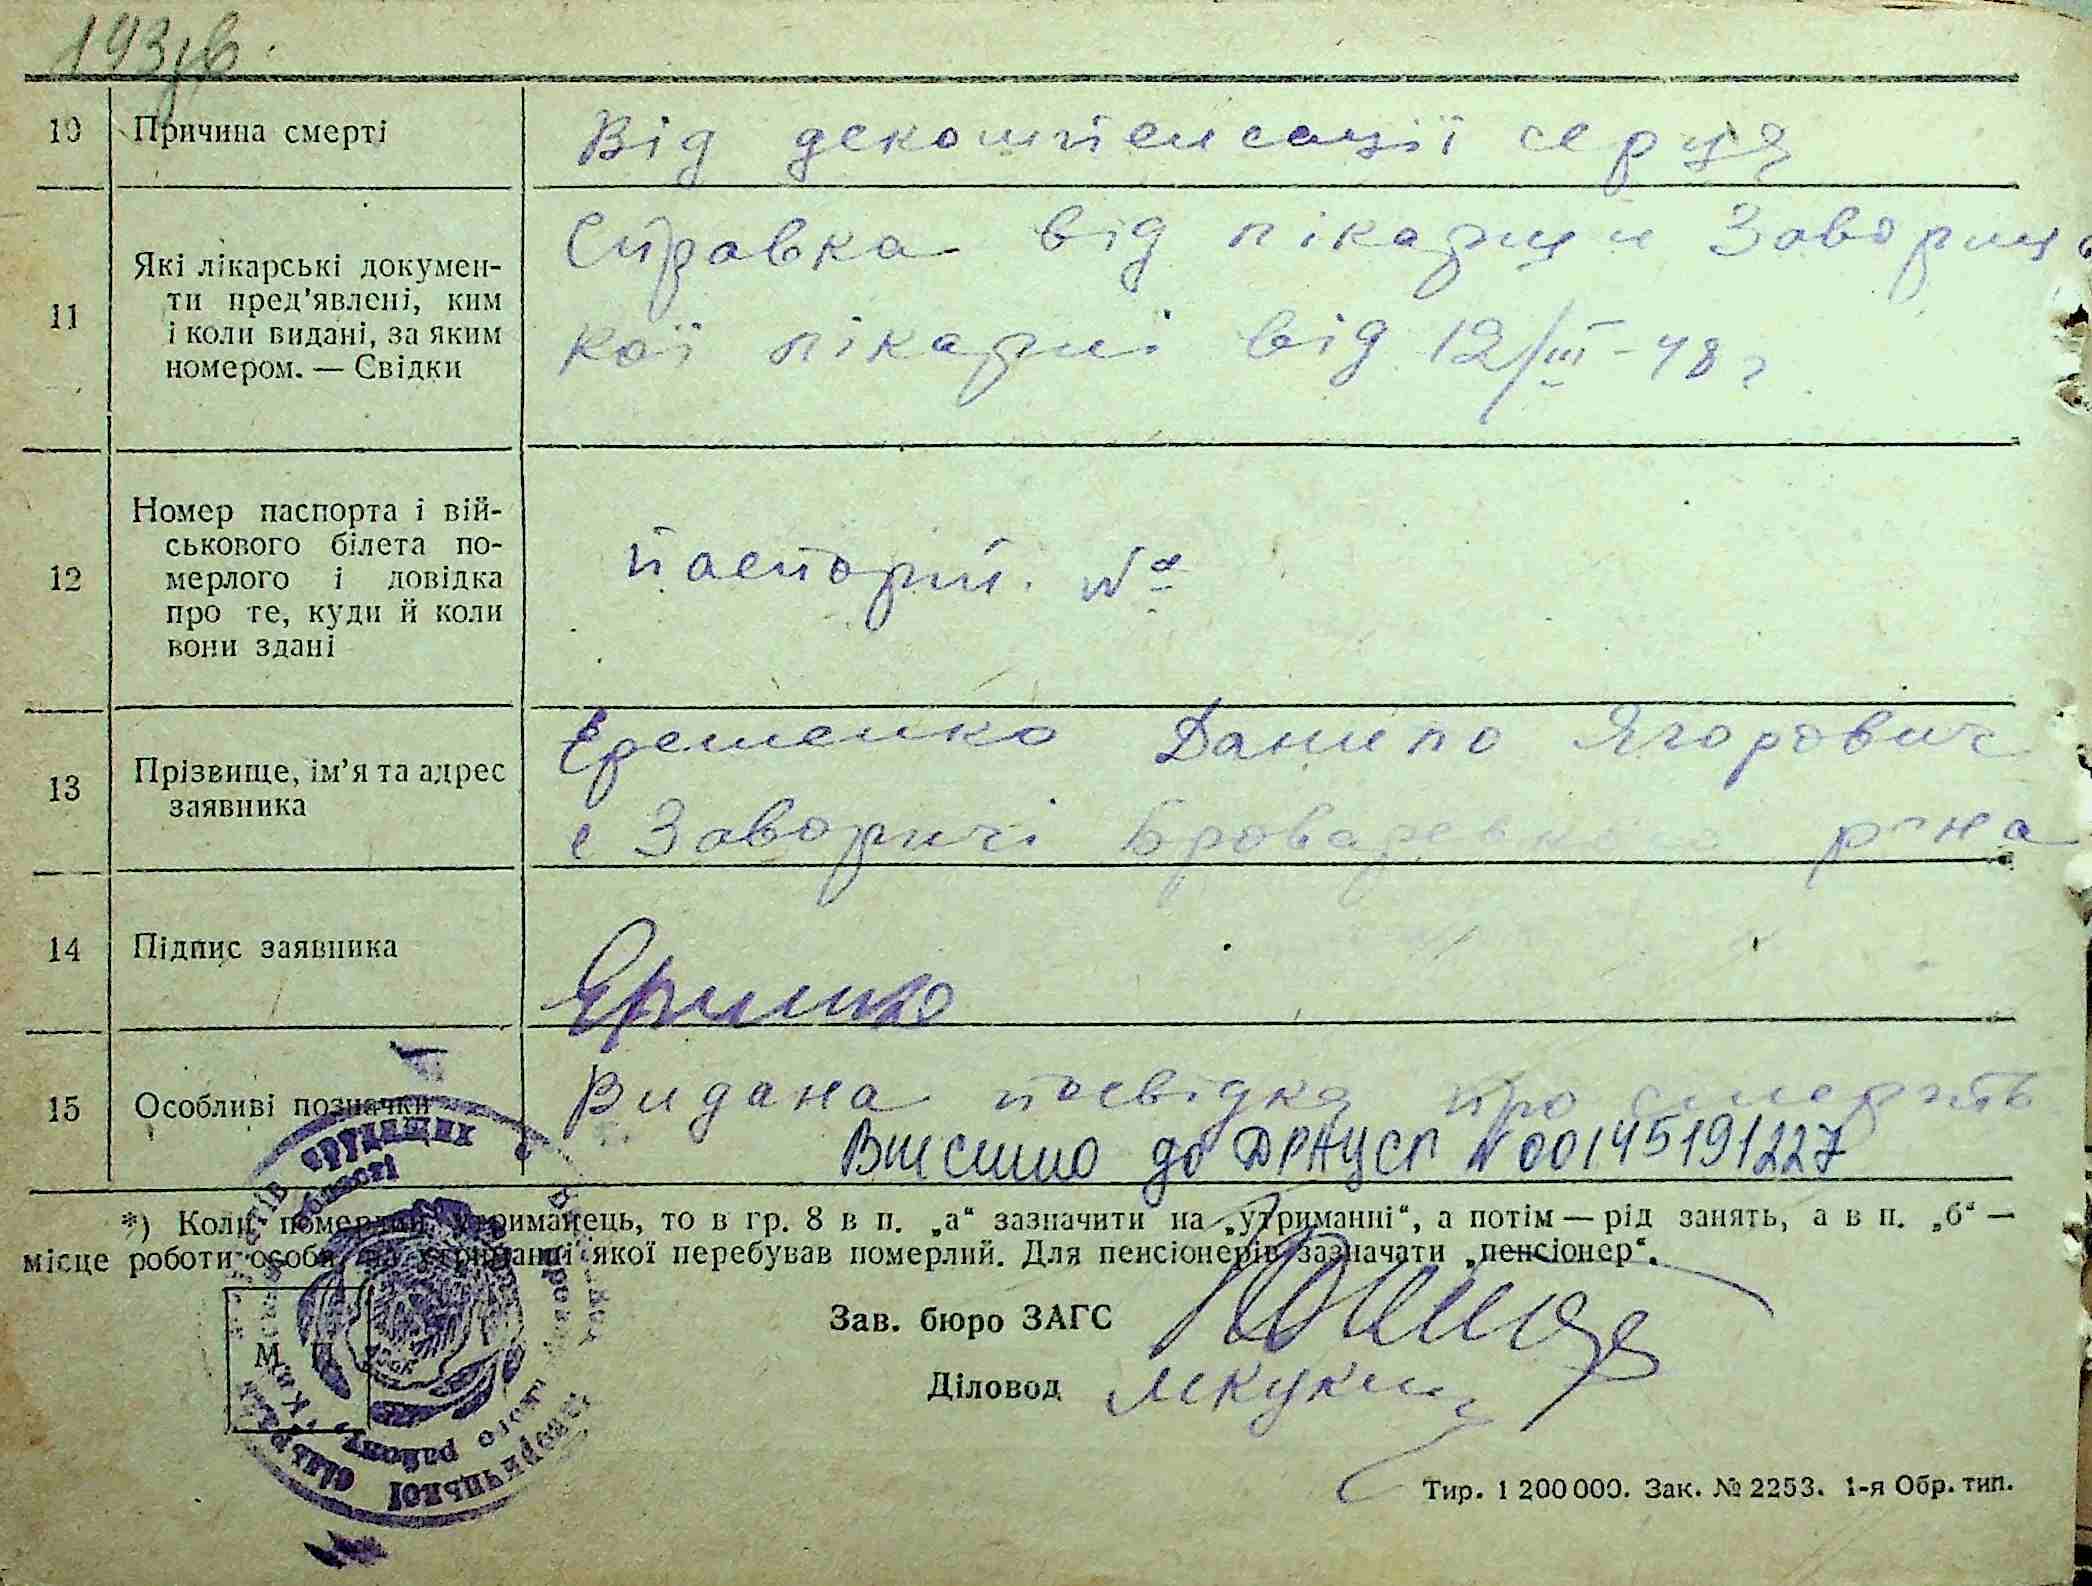 193зв.
10 Причина смерті Від декомпенсації серця
11 Які лікарські докумен-
ти пред'явлені, ким
і коли видані, за яким
номером. — Свідки
Справка від лікарци Завориц
кої лікарні від 12/III-48 г
12 Номер паспорта і вій-
ськового білета по-
мерлого і довідка
про те, куди й коли
вони здані
паспорт. №
13 Прізвище, ім'я та адрес
заявника
Єременко Данило Ягорович
с Заворичі Броварського р-на
14 Підпис заявника
15 Особливі позначки Видана посвідка про смерть
Внесено до ДРАЦСГ №00145191227
*) Коли померлий утриманець, то в гр. 8 в п. „а“ зазначити на „утриманні“, а потім — рід занять, а в п. „б“ —
місце роботи особи, на утриманні якої перебував померлий. Для пенсіонерів зазначати „пенсіонер“.
Зав. бюро ЗАГС
Діловод
М. П.
трудящих
області
району
Тир. 1 200 000. Зак. № 2253. 1-я Обр. тип.